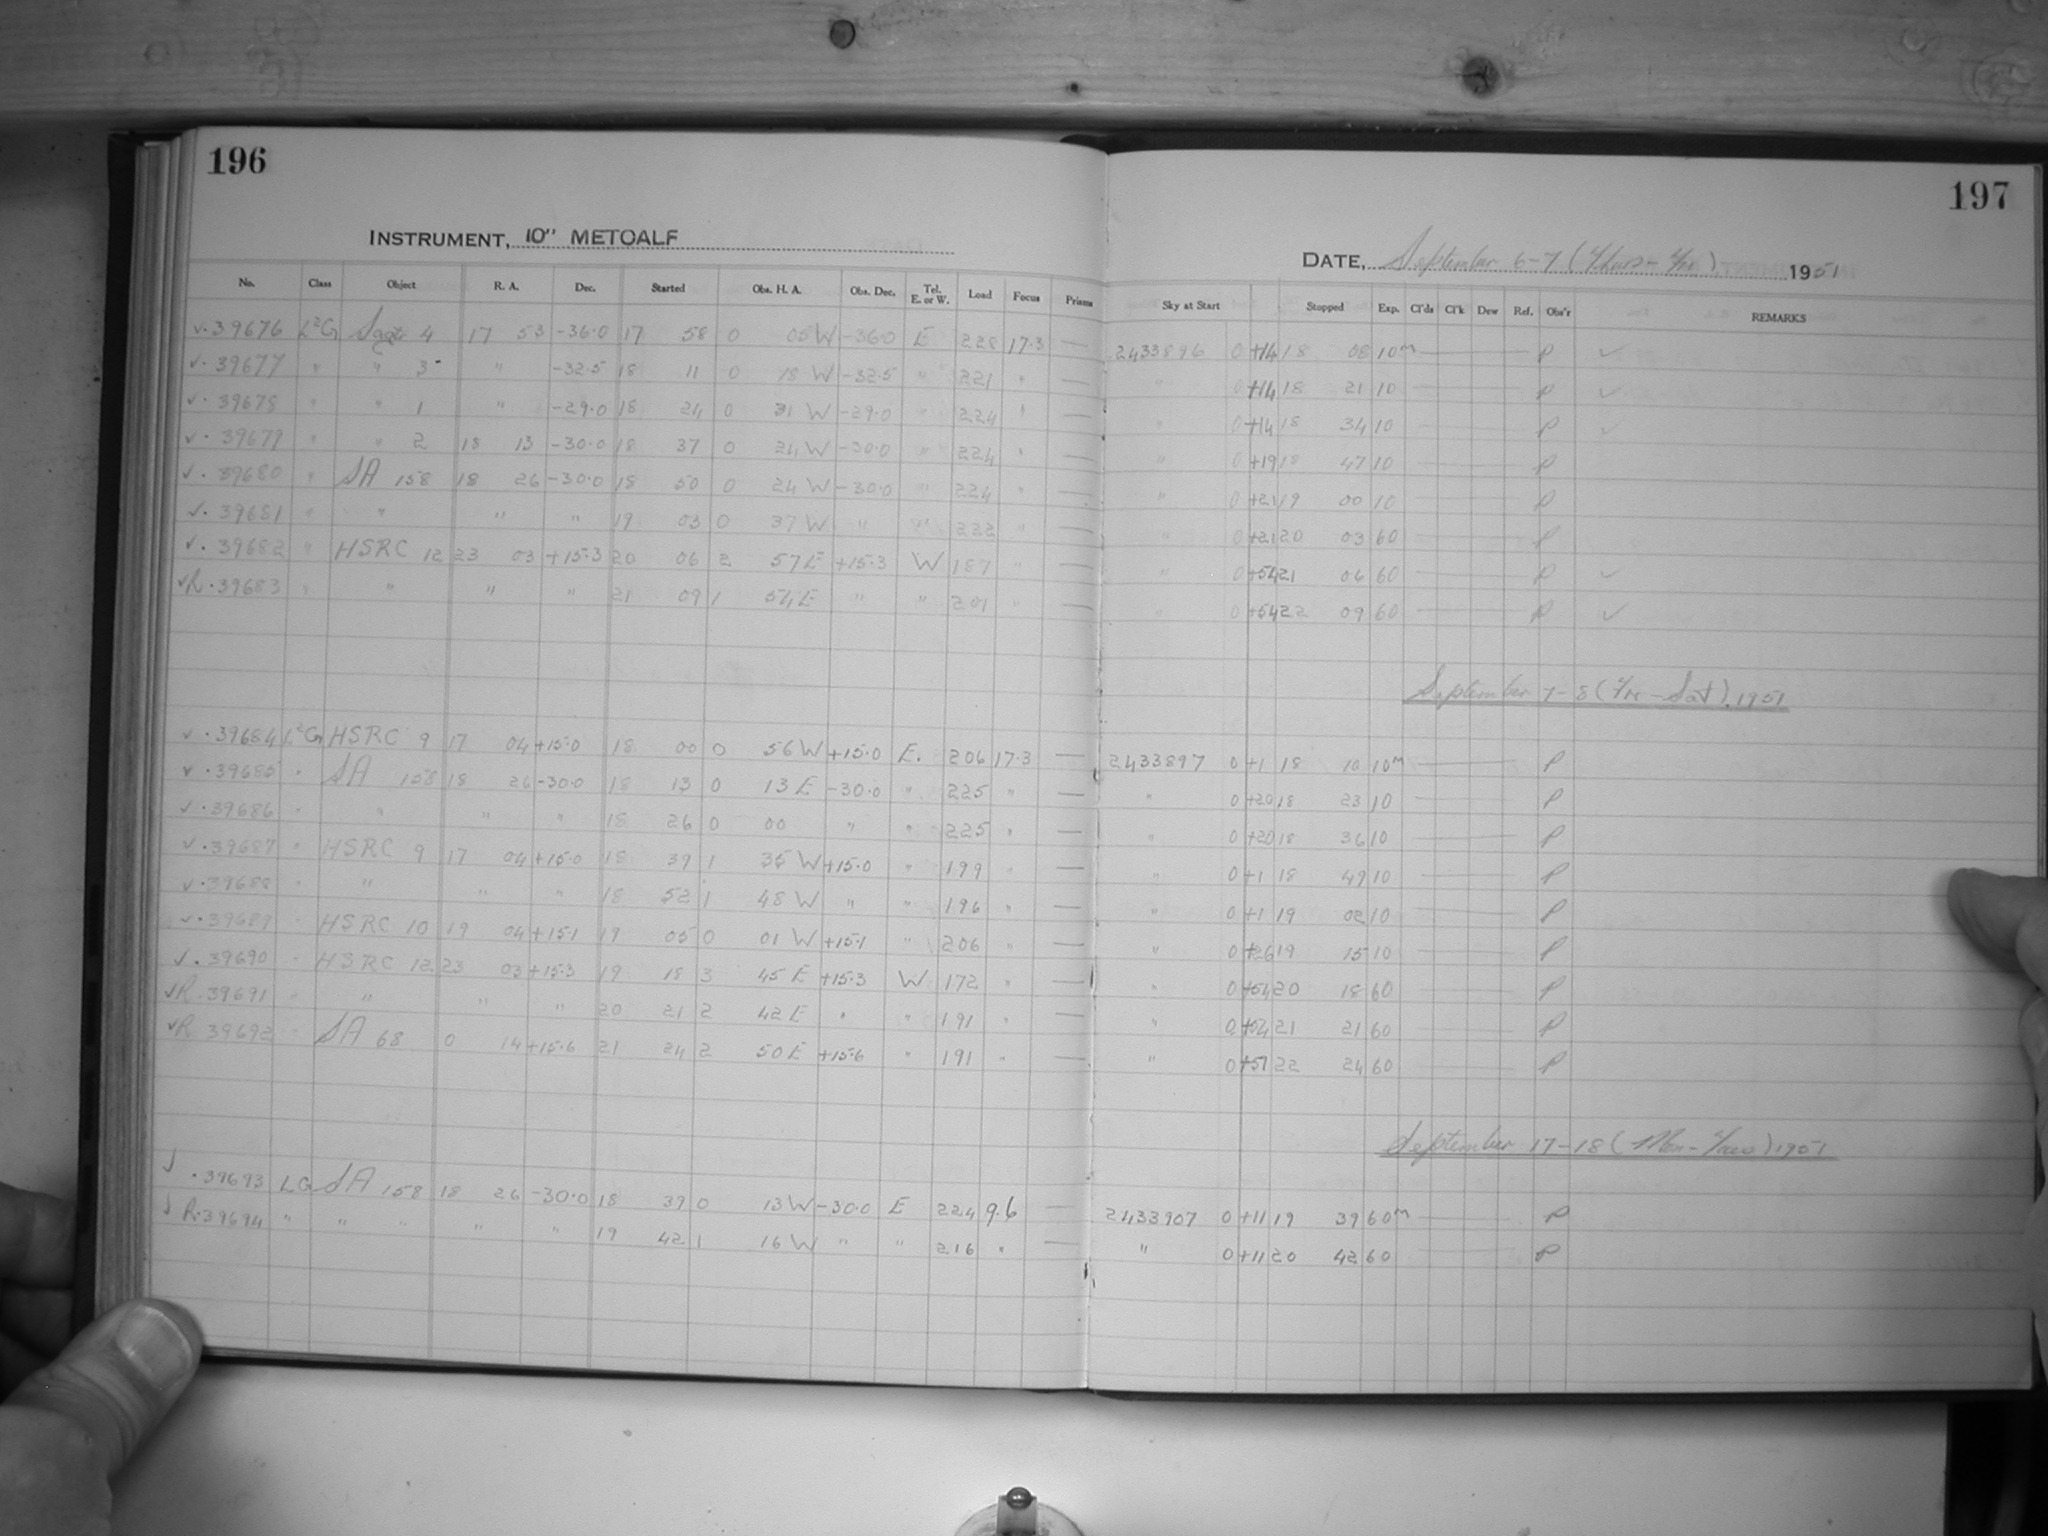 196
INSTRUMENT, 10" METCALF
No. Class Object R. A. Dec. Started Obs. H. A. Obs. Dec. Tel. E. or W. Load Focus Prisms
✓. 39676 L²G 4 17 53 -36.0 17 58 0 05 W -36.0 E 228 17.3 —
✓. 39677 " " 3 " -32.5 18 11 0 18 W -32.5 " 221 " —
✓. 39678 " " 1 " -29.0 18 24 0 31 W -29.0 " 224 " —
✓. 39679 " " 2 18 13 -30.0 18 37 0 24 W -30.0 " 224 " —
✓. 39680 " SA 158 18 26 -30.0 18 50 0 24 W -30.0 " 224 " —
✓. 39681 " " " " 19 03 0 37 W " " 222 " —
✓. 39682 " HSRC 12 23 03 +15.3 20 06 2 57 E +15.3 W 187 " —
✓R. 39683 " " " " 21 09 1 54 E " " 201 " —
✓. 39684 L²G HSRC 9 17 04 +15.0 18 00 0 56 W +15.0 E. 206 17.3 —
✓. 39685 " SA 158 18 26 -30.0 18 13 0 13 E -30.0 " 225 " —
✓. 39686 " " " " 18 26 0 00 " " 225 " —
✓. 39687 " HSRC 9 17 04 +15.0 18 39 1 35 W +15.0 " 199 " —
✓. 39688 " " " " 18 52 1 48 W " " 196 " —
✓. 39689 " HSRC 10 19 04 +15.1 19 05 0 01 W +15.1 " 206 " —
✓. 39690 " HSRC 12 23 03 +15.3 19 18 3 45 E +15.3 W 172 " —
✓R. 39691 " " " " 20 21 2 42 E " " 191 " —
✓R 39692 " SA 68 0 14 +15.6 21 24 2 50 E +15.6 " 191 " —
✓ . 39693 LG SA 158 18 26 -30.0 18 39 0 13 W -30.0 E 224 9.6 —
✓ R. 39694 " " " " " 19 42 1 16 W " " 216 " —
197
DATE, September 6-7 (Thurs-Fri) 1951
Sky at Start Stopped Exp. Cl'ds Cl'k Dew Ref. Obs'r REMARKS
2433896 0 +14 18 08 10m P ✓
" 0 +14 18 21 10 P ✓
" 0 +14 18 34 10 P ✓
" 0 +19 18 47 10 P
" 0 +21 19 00 10 P
" 0 +21 20 03 60 P
" 0 +54 21 06 60 P ✓
" 0 +54 22 09 60 P ✓
September 7-8 (Fri-Sat). 1951
2433897 0 +1 18 10 10m P
" 0 +20 18 23 10 P
" 0 +20 18 36 10 P
" 0 +1 18 49 10 P
" 0 +1 19 02 10 P
" 0 +26 19 15 10 P
" 0 +54 20 18 60 P
" 0 +54 21 21 60 P
" 0 +51 22 24 60 P
September 17-18 (Mon-Tues) 1951
2433907 0 +11 19 39 60m P
" 0 +11 20 42 60 P